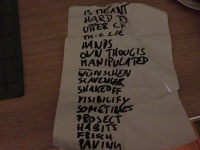 IS MEANT
HARD TO
UPPER CF
THE LIE
HANDS
OWN THOUGTS
MANIPULATED
WÜNSCHEN
SCAVENGER
SHAKEOFF
VISIBILITY
SOMETIMES
PROJECT
HABITS
FRISCH
PAVING